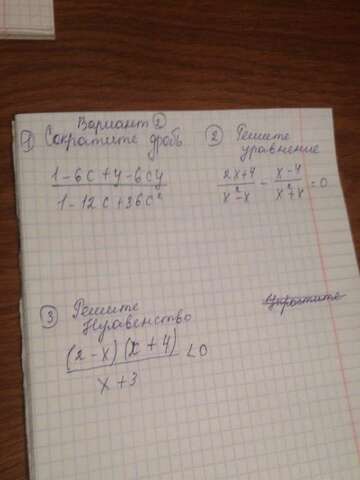 Вариант ②
① Сократите дробь
(1-6c+y-6cy)/(1-12c+36c²)
② Решите
уравнение
(2x+4)/(x²-x) - (x-4)/(x²+x) = 0
③ Решите
Нуравенство
((2-x)(x+4))/(x+3) <0
Упростите